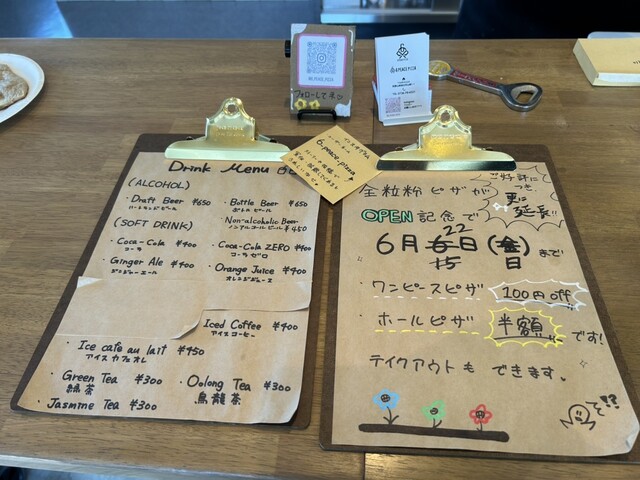 フォローしてネン
6.PEACE.PIZZA
6.peace.pizza
Drink Menu
(ALCOHOL)
・Draft Beer ¥650
・Bottle Beer ¥650
ボトルビール
・Non-alcoholic Beer
ノンアルコールビール ¥450
(SOFT DRINK)
・Coca-Cola ¥400
コーラ
・Coca-Cola ZERO ¥400
コーラゼロ
・Ginger Ale ¥400
ジンジャーエール
・Orange Juice ¥400
オレンジジュース
Iced Coffee ¥400
アイスコーヒー
・Ice cafe au lait ¥450
アイスカフェオレ
・Green Tea ¥300
緑茶
・Oolong Tea ¥300
烏龍茶
・Jasmine Tea ¥300
ご好評に
つき、
更に
延長!!
全粒粉ピザが
OPEN記念で
22
6月 日(金)まで
15 日
・ワンピースピザ 100円off
・ホールピザ 半額 です!
テイクアウトもできます。